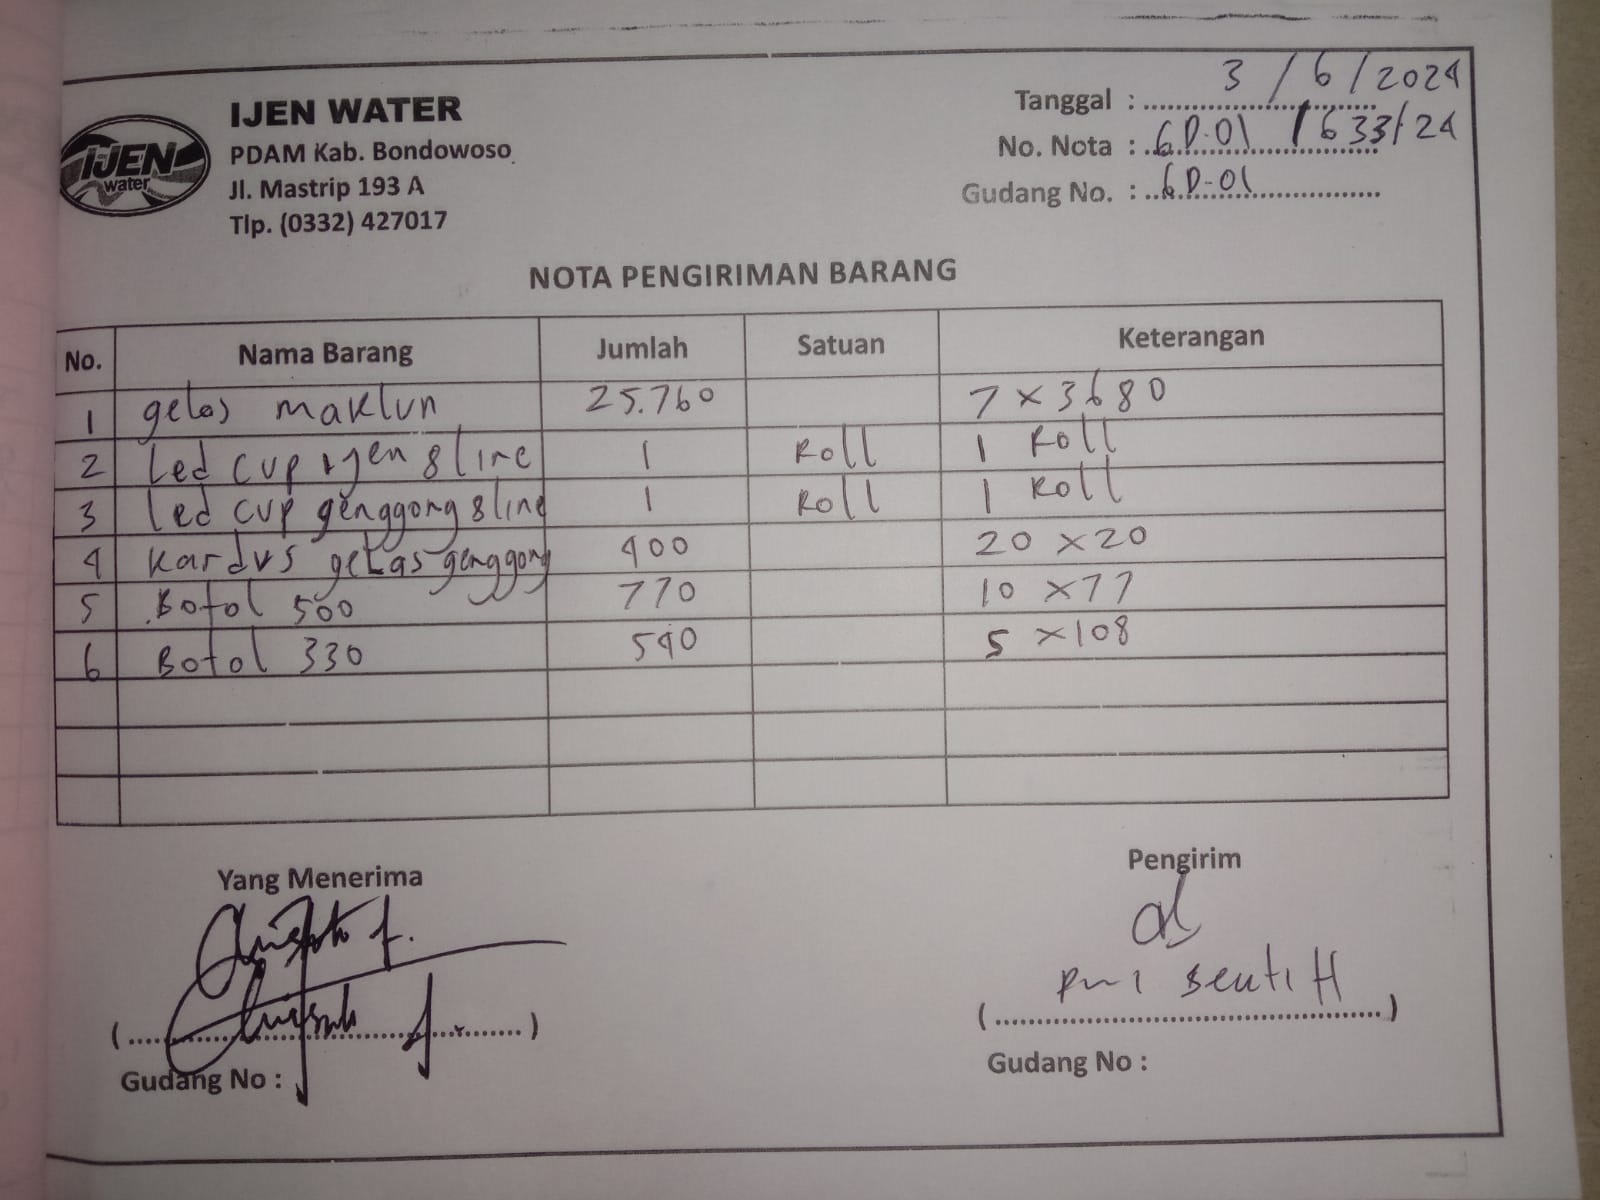 IJEN
water
IJEN WATER
PDAM Kab. Bondowoso
Jl. Mastrip 193 A
Tlp. (0332) 427017
Tanggal : 3 / 6 / 2024
No. Nota : GD-01 / 633/24
Gudang No. : GD-01
NOTA PENGIRIMAN BARANG
No. Nama Barang Jumlah Satuan Keterangan
1 gelas maklun 25.760 7 x 3680
2 Led cup ijen 8 line 1 Roll 1 Roll
3 Led cup genggong 8 line 1 Roll 1 Roll
4 Kardus gelas genggong 400 20 x 20
5 Botol 500 770 10 x 77
6 Botol 330 540 5 x 108
Yang Menerima Pengirim
(..........) (..........)
Gudang No : Gudang No :